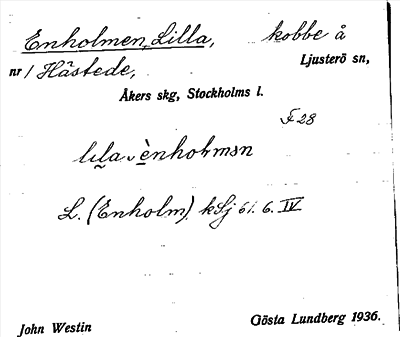 Enholmen, Lilla, kobbe å
nr 1 Hästede, Ljusterö sn,
Åkers skg, Stockholms l.
F 28
lila ènholmən
L. (Enholm) kSj 61. 6. IV
John Westin Gösta Lundberg 1936.